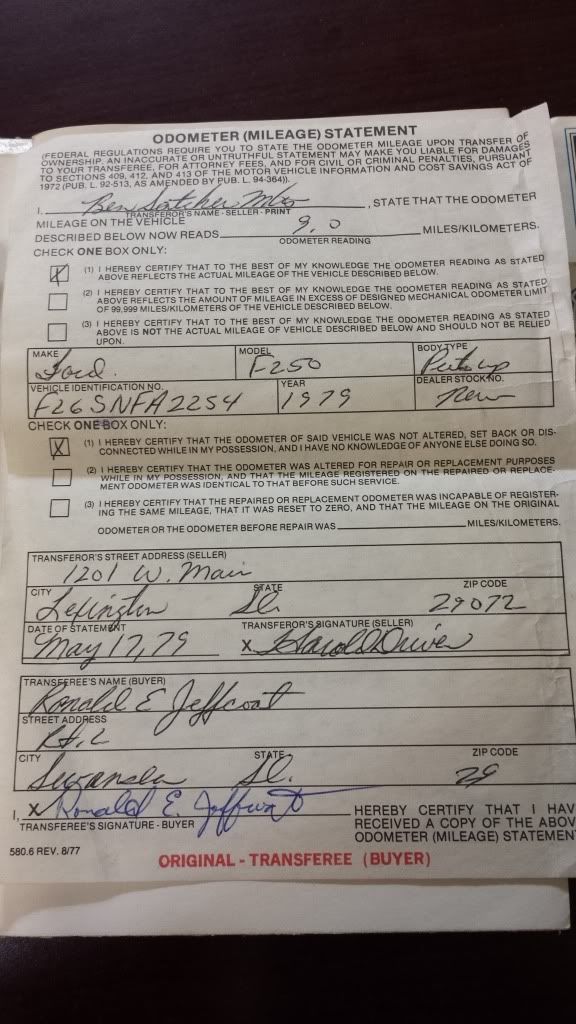 ODOMETER (MILEAGE) STATEMENT
(FEDERAL REGULATIONS REQUIRE YOU TO STATE THE ODOMETER MILEAGE UPON TRANSFER OF
OWNERSHIP. AN INACCURATE OR UNTRUTHFUL STATEMENT MAY MAKE YOU LIABLE FOR DAMAGES
TO YOUR TRANSFEREE, FOR ATTORNEY FEES, AND FOR CIVIL OR CRIMINAL PENALTIES, PURSUANT
TO SECTIONS 409, 412, AND 413 OF THE MOTOR VEHICLE INFORMATION AND COST SAVINGS ACT OF
1972 (PUB. L. 92-513, AS AMENDED BY PUB. L. 94-364)).
I, Ben Satcher Mtrs , STATE THAT THE ODOMETER
TRANSFEROR'S NAME - SELLER - PRINT
MILEAGE ON THE VEHICLE
DESCRIBED BELOW NOW READS 9.0 MILES/KILOMETERS.
ODOMETER READING
CHECK ONE BOX ONLY:
X (1) I HEREBY CERTIFY THAT TO THE BEST OF MY KNOWLEDGE THE ODOMETER READING AS STATED
ABOVE REFLECTS THE ACTUAL MILEAGE OF THE VEHICLE DESCRIBED BELOW.
(2) I HEREBY CERTIFY THAT TO THE BEST OF MY KNOWLEDGE THE ODOMETER READING AS STATED
ABOVE REFLECTS THE AMOUNT OF MILEAGE IN EXCESS OF DESIGNED MECHANICAL ODOMETER LIMIT
OF 99,999 MILES/KILOMETERS OF THE VEHICLE DESCRIBED BELOW.
(3) I HEREBY CERTIFY THAT TO THE BEST OF MY KNOWLEDGE THE ODOMETER READING AS STATED
ABOVE IS NOT THE ACTUAL MILEAGE OF VEHICLE DESCRIBED BELOW AND SHOULD NOT BE RELIED
UPON.
MAKE MODEL BODY TYPE
Ford F250 Pickup
VEHICLE IDENTIFICATION NO. YEAR DEALER STOCK NO.
F26SNFA2254 1979 New
CHECK ONE BOX ONLY:
X (1) I HEREBY CERTIFY THAT THE ODOMETER OF SAID VEHICLE WAS NOT ALTERED, SET BACK OR DIS-
CONNECTED WHILE IN MY POSSESSION, AND I HAVE NO KNOWLEDGE OF ANYONE ELSE DOING SO.
(2) I HEREBY CERTIFY THAT THE ODOMETER WAS ALTERED FOR REPAIR OR REPLACEMENT PURPOSES
WHILE IN MY POSSESSION, AND THAT THE MILEAGE REGISTERED ON THE REPAIRED OR REPLACE-
MENT ODOMETER WAS IDENTICAL TO THAT BEFORE SUCH SERVICE.
(3) I HEREBY CERTIFY THAT THE REPAIRED OR REPLACEMENT ODOMETER WAS INCAPABLE OF REGISTER-
ING THE SAME MILEAGE, THAT IT WAS RESET TO ZERO, AND THAT THE MILEAGE ON THE ORIGINAL
ODOMETER OR THE ODOMETER BEFORE REPAIR WAS MILES/KILOMETERS.
TRANSFEROR'S STREET ADDRESS (SELLER)
1201 W. Main
CITY STATE ZIP CODE
Lexington SC. 29072
DATE OF STATEMENT TRANSFEROR'S SIGNATURE (SELLER)
May 17, 79 X Harold Driver
TRANSFEREE'S NAME (BUYER)
Ronald E Jeffcoat
STREET ADDRESS
Rt. 2
CITY STATE ZIP CODE
Swansea SC. 29
I, X Ronald E. Jeffcoat HEREBY CERTIFY THAT I HAV
TRANSFEREE'S SIGNATURE - BUYER RECEIVED A COPY OF THE ABOV
ODOMETER (MILEAGE) STATEMENT
580.6 REV. 8/77
ORIGINAL - TRANSFEREE (BUYER)